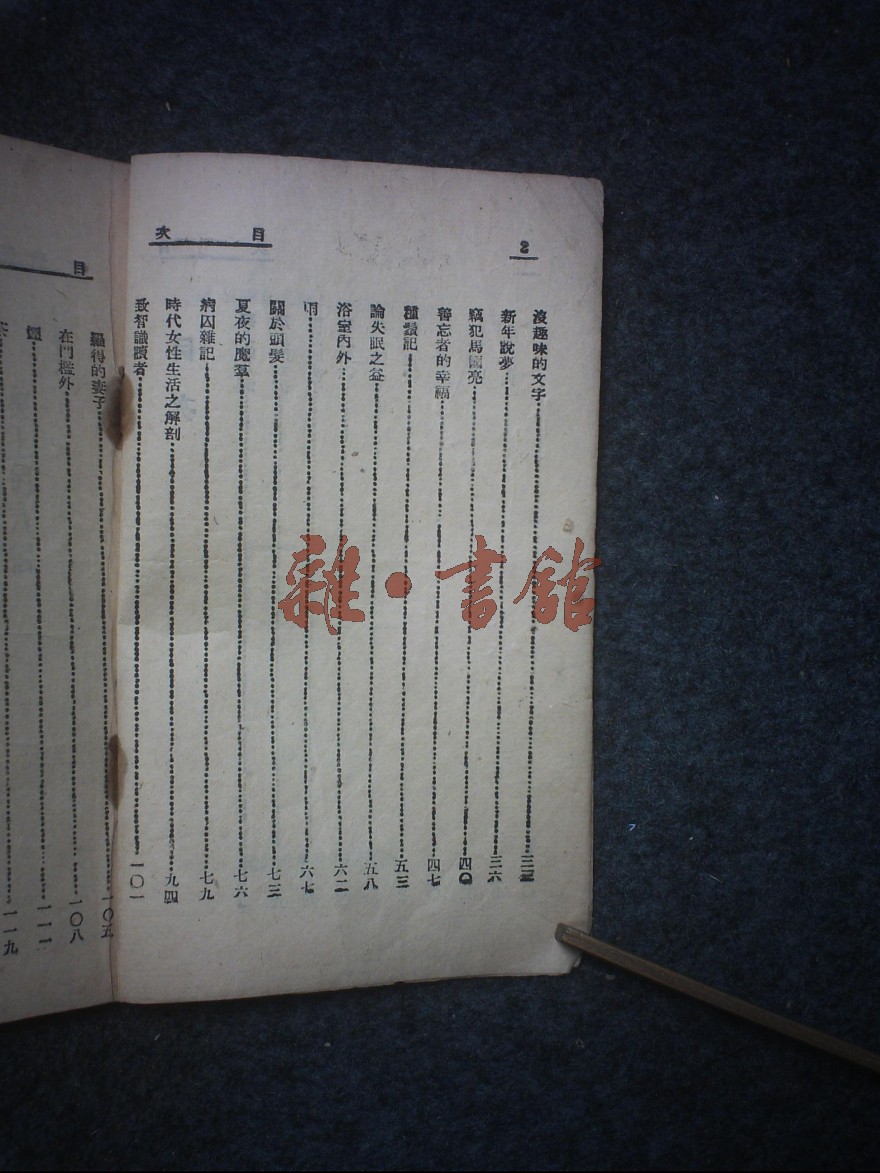 2
目次
沒趣味的文字 三三
新年說夢 三六
竊犯馬國亮 四〇
善忘者的幸福 四七
種鬚記 五三
論失眠之益 五八
浴室內外 六二
雨 六七
關於頭髮 七三
夏夜的魔羣 七六
病囚雜記 七九
時代女性生活之解剖 九四
致智識讀者 一〇一
目
羅得的妻子 一〇五
在門檻外 一〇八
一一一
一一九
雜·書館